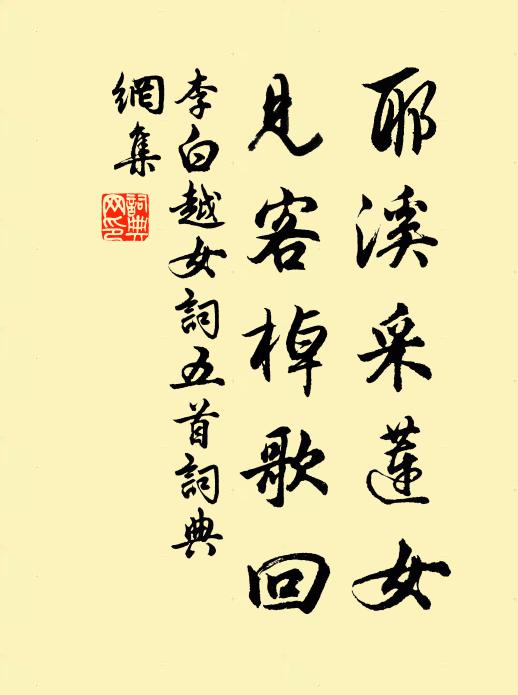 耶溪采蓮女
見客棹歌回
李白越女詞五首詞典
網集
詞典
网印